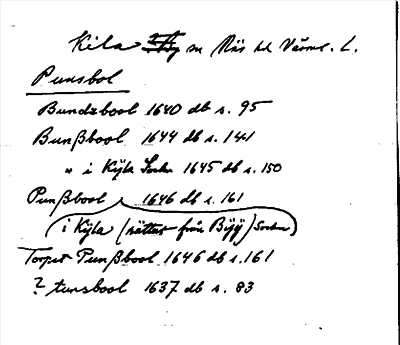 Kila sn Näs hd Värml. L.
Punsbol
Bundzbool 1640 db s. 95
Bunßbool 1644 db s. 141
" i Kÿla Sochn 1645 db s. 150
Punßbool 1646 db s. 161
i Kÿla (rättat från Bÿÿ) Sochn
Torpet Punßbool 1646 db s. 161
? tunsbool 1637 db s. 83